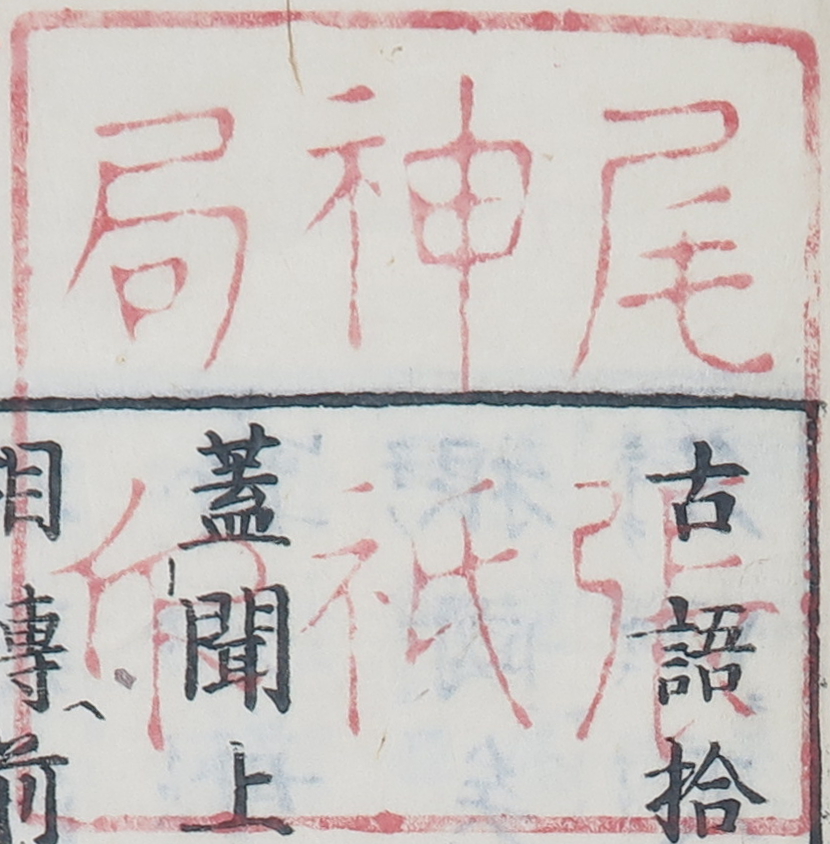 尾張
神祇
局印
古語拾
蓋聞上
相傳前